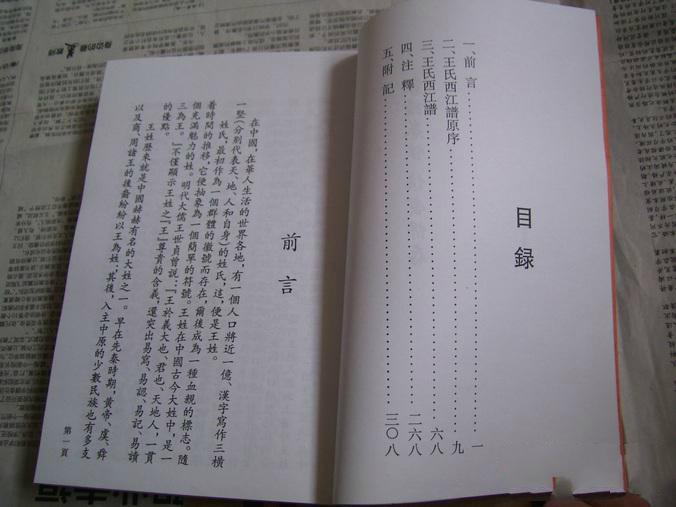 目録
一、前言……………………一
二、王氏西江譜原序……………………九
三、王氏西江譜……………………六八
四、注釋……………………二六八
五、附記……………………三〇八
前言
在中國，在華人生活的世界各地，有一個人口將近一億、漢字寫作三橫
一竪（分别代表天、地、人和自身）的姓氏，這，便是王姓。
姓氏，最初作為一個群體的徽號而存在，爾後成為一種血親的標志。隨
着時間的推移，它便抽象為一個簡單的符號。王姓在中國古今大姓中，是一
個充滿魅力的姓。明代大儒王世貞曾説：『王於義大也、君也、天地人，一貫
三為王。』不僅顯示王姓之『王』尊貴的含義，還突出易寫、易認、易記、易讀
的優點。
王姓歷來就是中國赫赫有名的大姓之一。早在先秦時期，黄帝、虞、舜
以及商、周諸王的後裔紛紛以王為姓；其後，入主中原的少數民族也有多支
第一頁